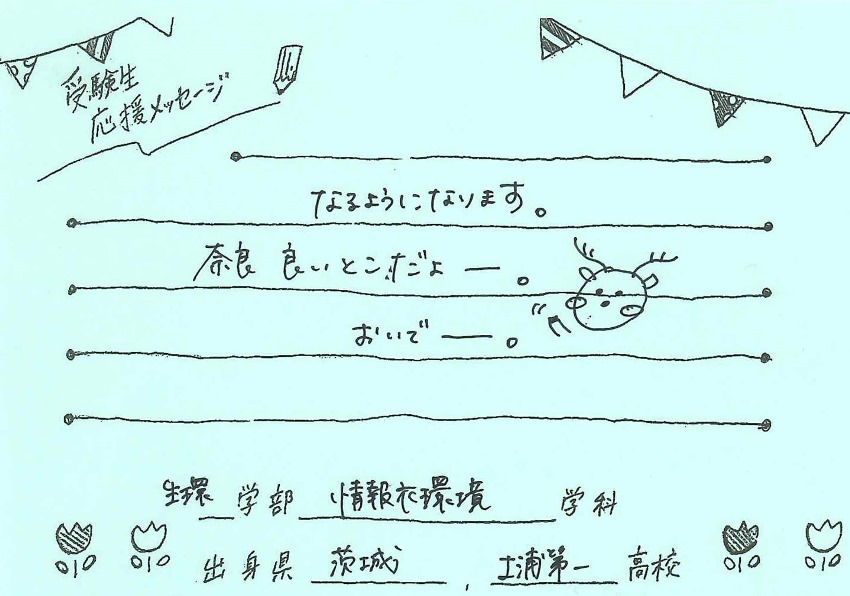 受験生
応援メッセージ
なるようになります。
奈良 良いとこだよー。
おいでー。
生環 学部 情報衣環境 学科
出身県 茨城 , 土浦第一 高校